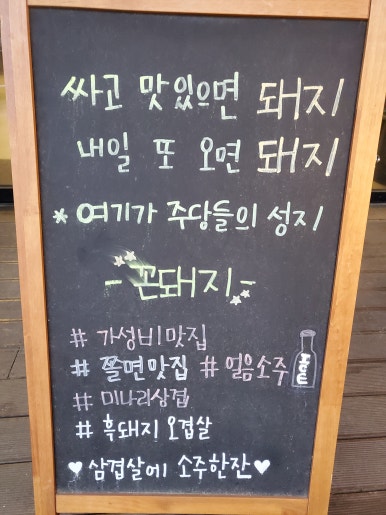 싸고 맛있으면 돼지
내일 또 오면 돼지
* 여기가 주당들의 성지
- 꼰돼지 -
# 가성비맛집
# 쫄면맛집 # 얼음소주
# 미나리삼겹
# 흑돼지 오겹살
♥ 삼겹살에 소주한잔 ♥